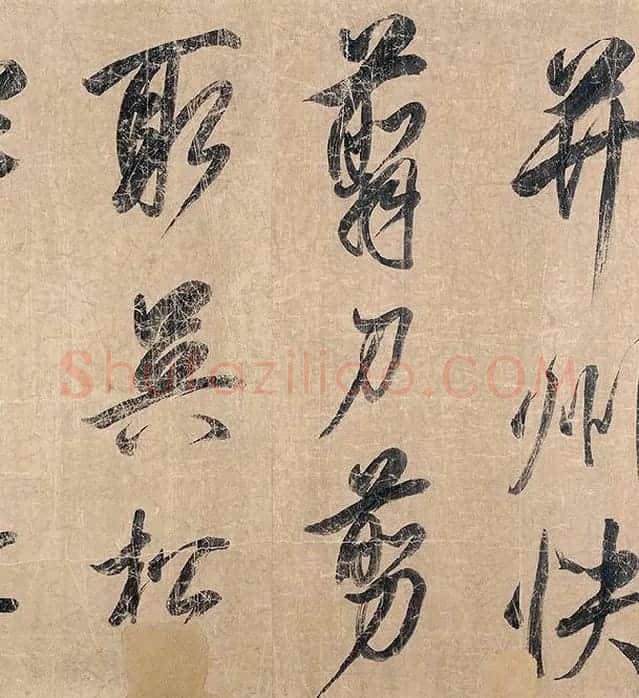 并州快
翦刀剪
取吳松
Shufaziliao.COM